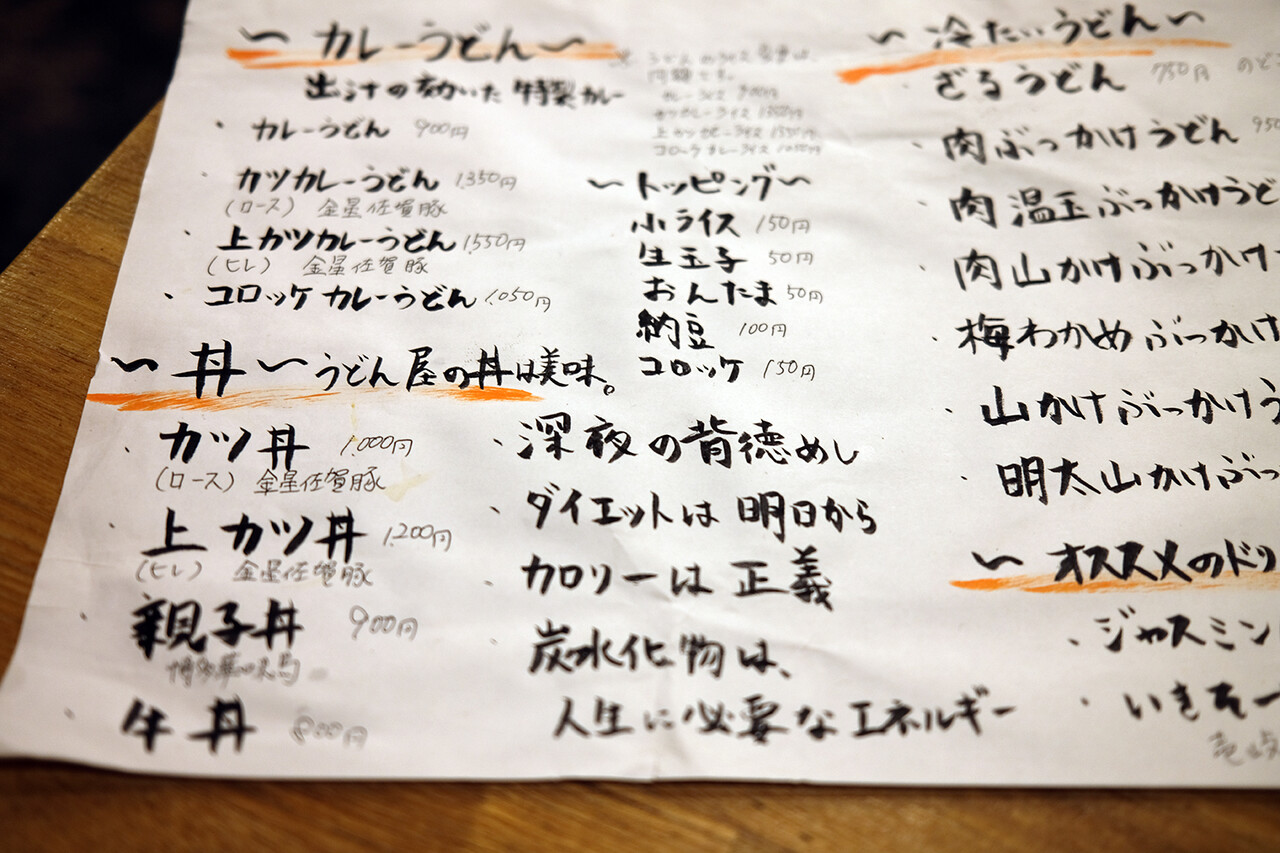 〜 カレーうどん 〜
出汁の効いた 特製カレー
・カレーうどん 900円
・カツカレーうどん 1,350円
(ロース) 金星佐賀豚
・上カツカレーうどん 1,550円
(ヒレ) 金星佐賀豚
・コロッケカレーうどん 1,050円
〜 丼 〜 うどん屋の丼は美味。
・カツ丼 1,000円
(ロース) 金星佐賀豚
・上カツ丼 1,200円
(ヒレ) 金星佐賀豚
・親子丼 900円
・牛丼 800円
カレーライス 900円
カツカレーライス 1350円
上カツカレーライス 1550円
コロッケカレーライス 1050円
〜トッピング〜
小ライス 150円
生玉子 50円
おんたま 50円
納豆 100円
コロッケ 150円
・深夜の背徳めし
・ダイエットは 明日から
・カロリーは 正義
・炭水化物は、
人生に必要なエネルギー
〜 冷たいうどん 〜
・ざるうどん 750円 のど
・肉ぶっかけうどん 950
・肉温玉ぶっかけうど
・肉山かけぶっかけ
・梅わかめぶっかけ
・山かけぶっかけう
・明太山かけぶっ
〜 オススメのドリ
・ジャスミン
・いきそー